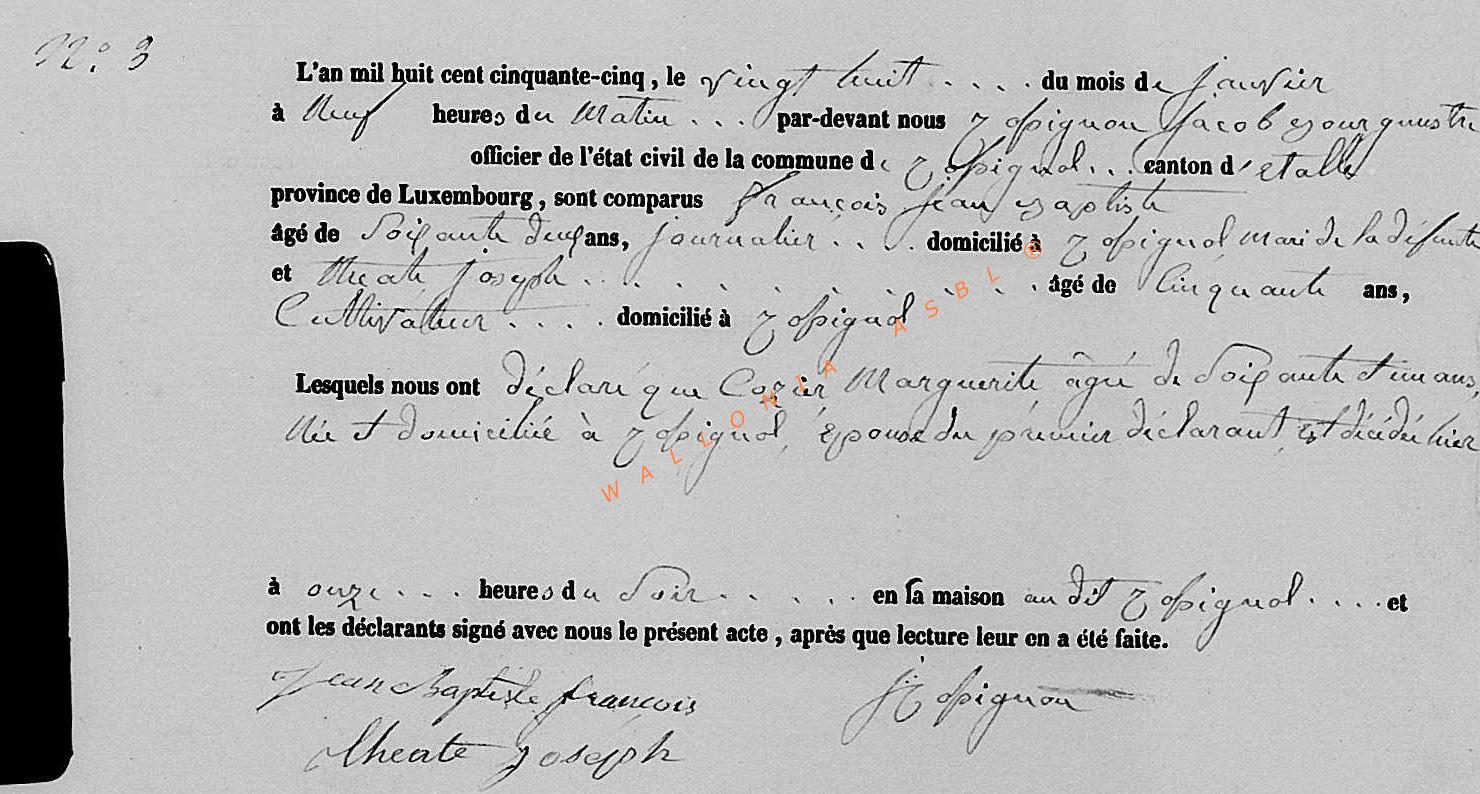 N.° 3
L'an mil huit cent cinquante-cinq, le vingt huit . . . . du mois de janvier
à Neuf heures du Matin . . . par-devant nous Jacob
officier de l'état civil de la commune de . . . canton d'étalle
province de Luxembourg, sont comparus françois jean Baptiste
âgé de Soixante deux ans, journalier . . . . domicilié à mari de la défunte
et joseph . . . . . . . . . . . âgé de Cinquante ans,
Cultivateur . . . . domicilié à
Lesquels nous ont déclaré que Marguerite âgée de Soixante et un ans,
Née et domiciliée à , Epouse du premier déclarant, est décédée hier
à onze . . . heures du Soir . . . . . en sa maison au dit . . . . et
ont les déclarants signé avec nous le présent acte, après que lecture leur en a été faite.
Jean Baptiste françois
Joseph
WALLONIA ASBL ®